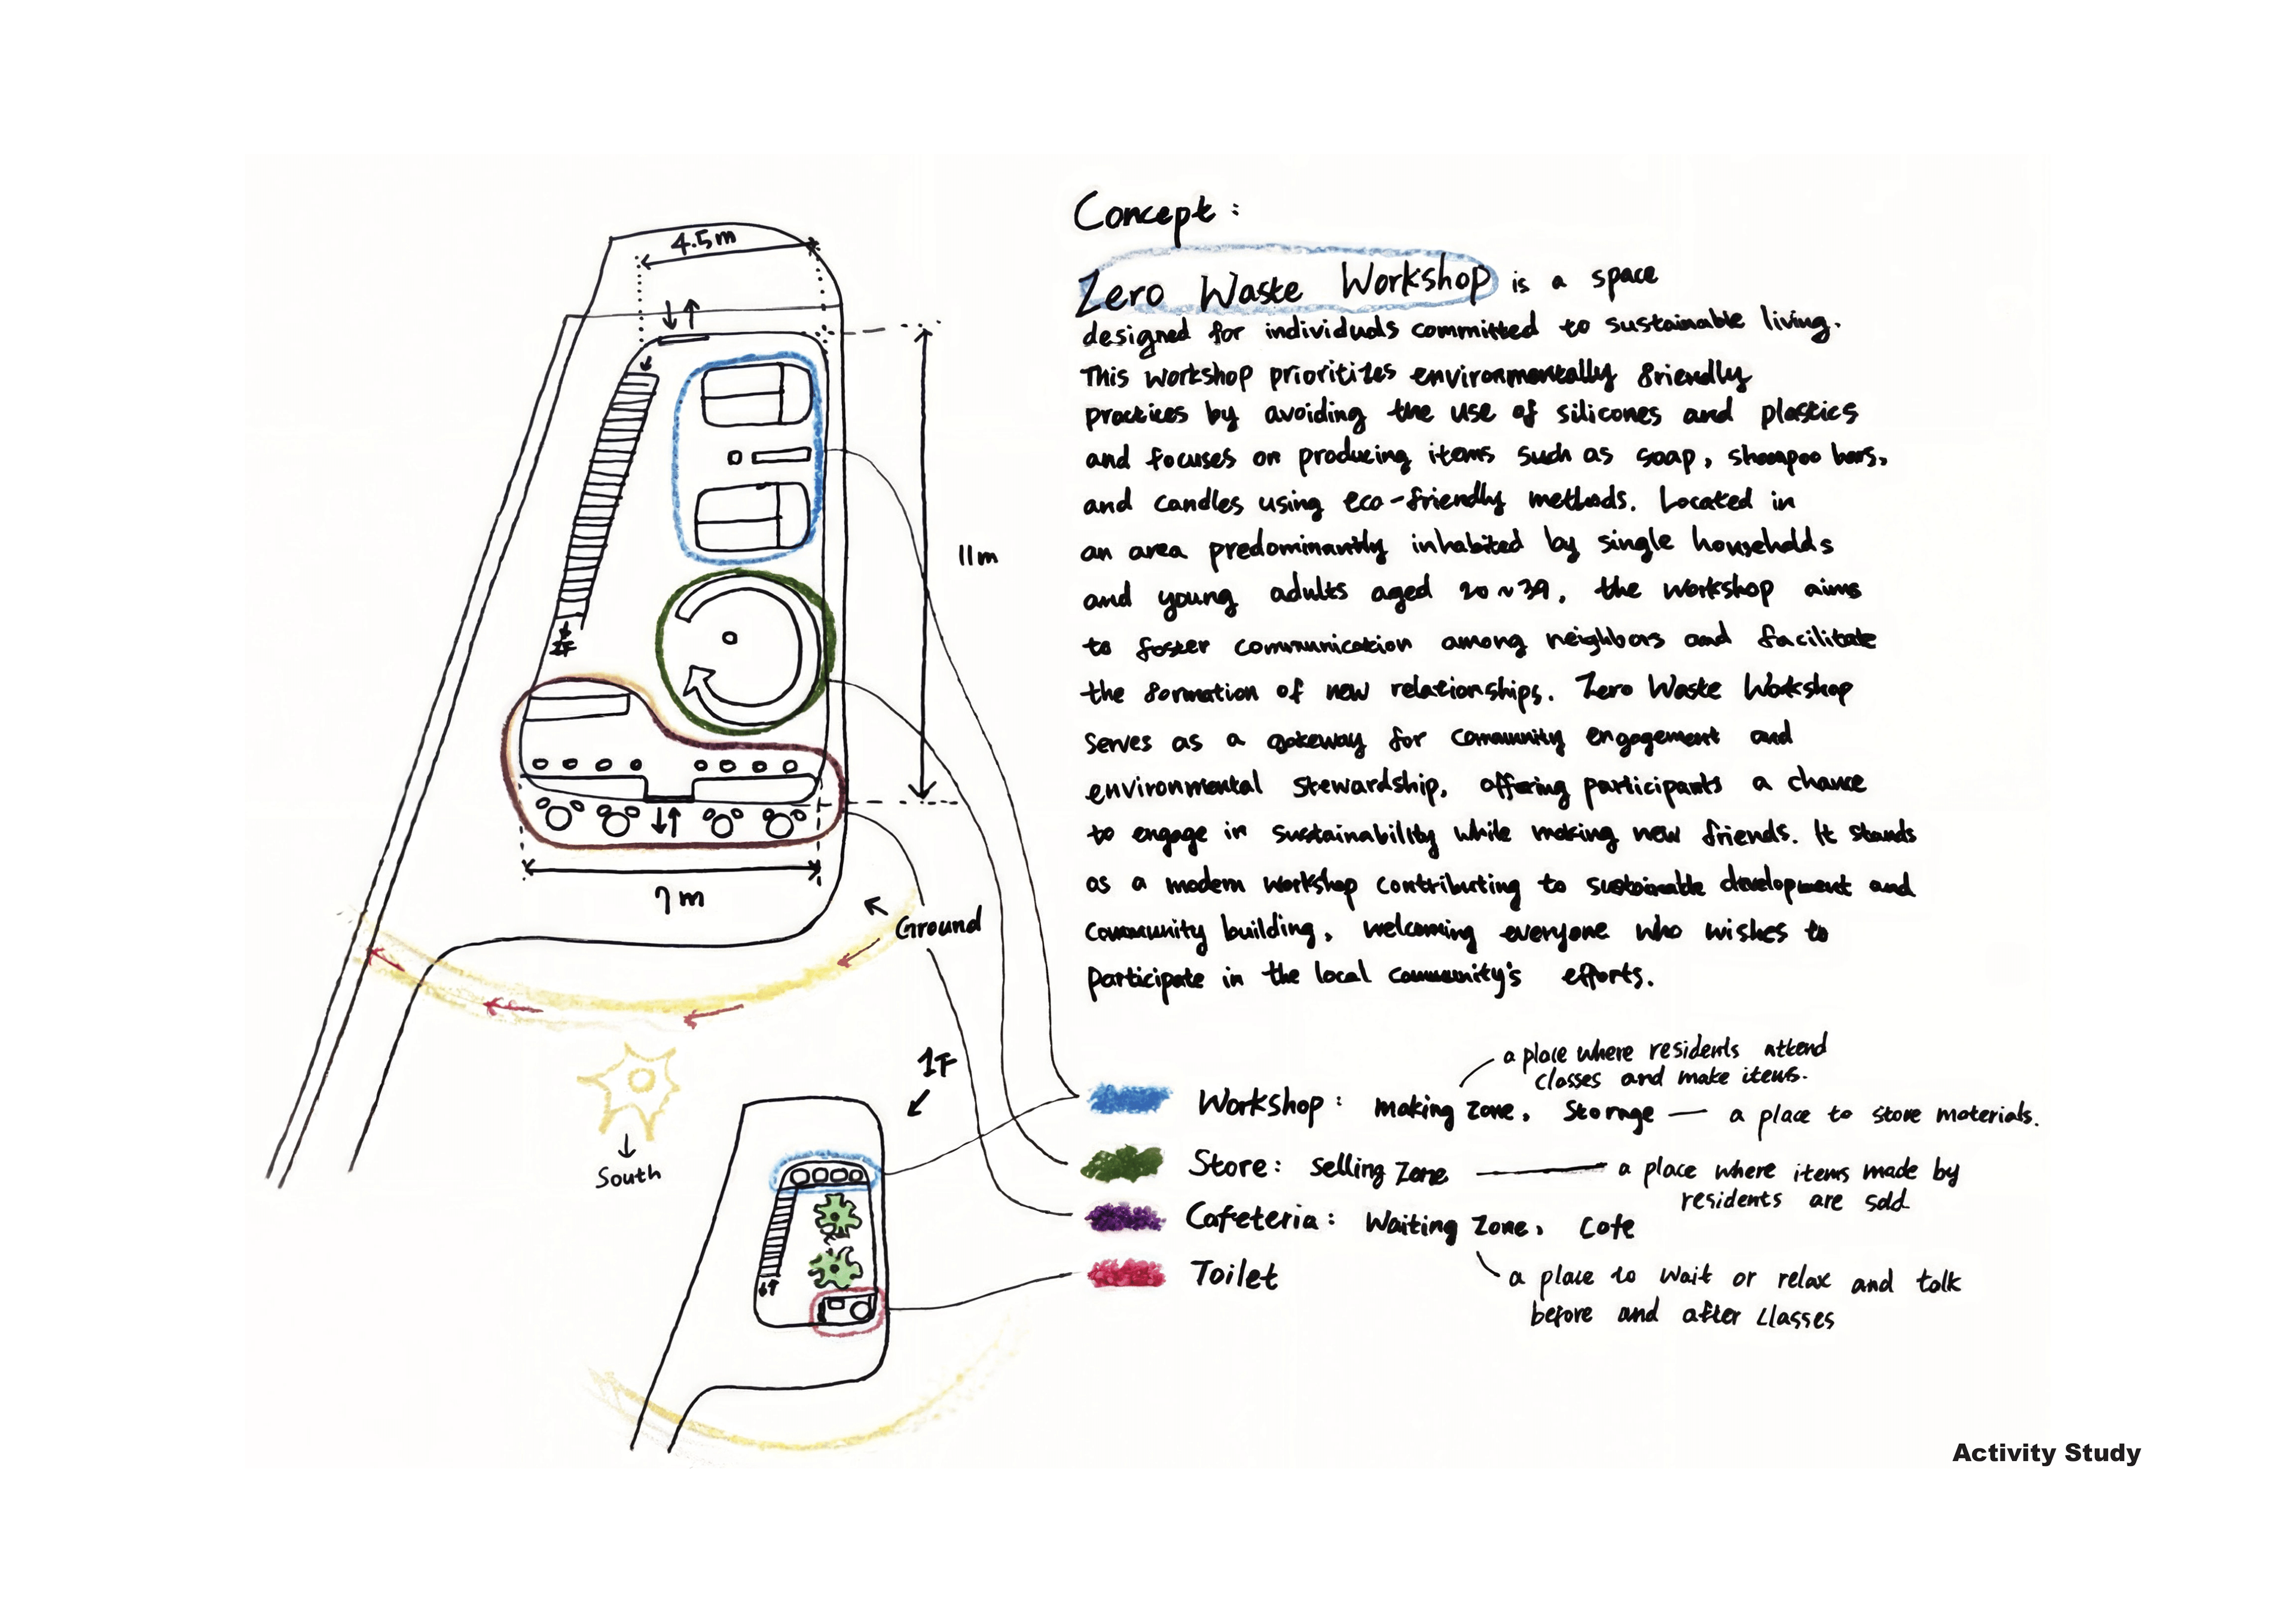 4.5m
11m
1F
7m
Ground
South
1F
Concept :
Zero Waste Workshop is a space
designed for individuals committed to sustainable living.
This workshop prioritizes environmentally friendly
practices by avoiding the use of silicones and plastics
and focuses on producing items such as soap, shampoo bars,
and candles using eco-friendly methods. Located in
an area predominantly inhabited by single households
and young adults aged 20~39, the workshop aims
to foster communication among neighbors and facilitate
the formation of new relationships. Zero Waste Workshop
serves as a gateway for community engagement and
environmental stewardship, offering participants a chance
to engage in sustainability while making new friends. It stands
as a modern workshop contributing to sustainable development and
community building, welcoming everyone who wishes to
participate in the local community's efforts.
a place where residents attend
classes and make items.
Workshop : Making Zone, Storage — a place to store materials.
Store : Selling Zone — a place where items made by
residents are sold
Cafeteria : Waiting Zone, Cafe
Toilet
a place to wait or relax and talk
before and after classes
Activity Study